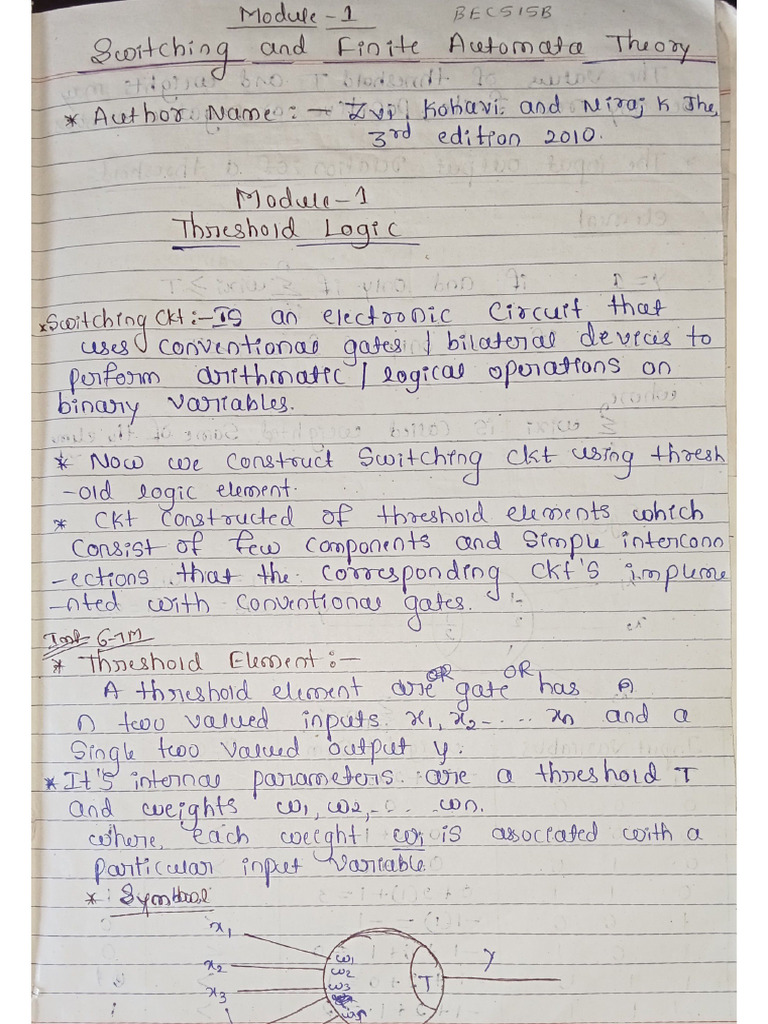 Module-1 BEC515B
Switching and Finite Automata Theory
* Author Name:- Zvi Kohavi and Niraj K Jha,
3rd edition 2010.
Module-1
Threshold Logic
*Switching ckt:- IS an electronic circuit that
uses conventional gates / bilateral devices to
perform arithmatic / logical operations on
binary variables.
* Now we construct switching ckt using thresh
-old logic element.
* Ckt constructed of threshold elements which
consist of few components and simple interconn
-ections that the corresponding ckt's impleme
-nted with conventional gates.
Imp 6-7M
* Threshold Element:-
OR OR
A threshold element are gate has A
n two valued inputs x1, x2-... xn and a
single two valued output y.
* It's internal parameters are a threshold T
and weights w1, w2,-... wn.
where, each weight wi is associated with a
particular input variable.
* Symbol
x1
w1 y
x2 w2
w3 T
x3